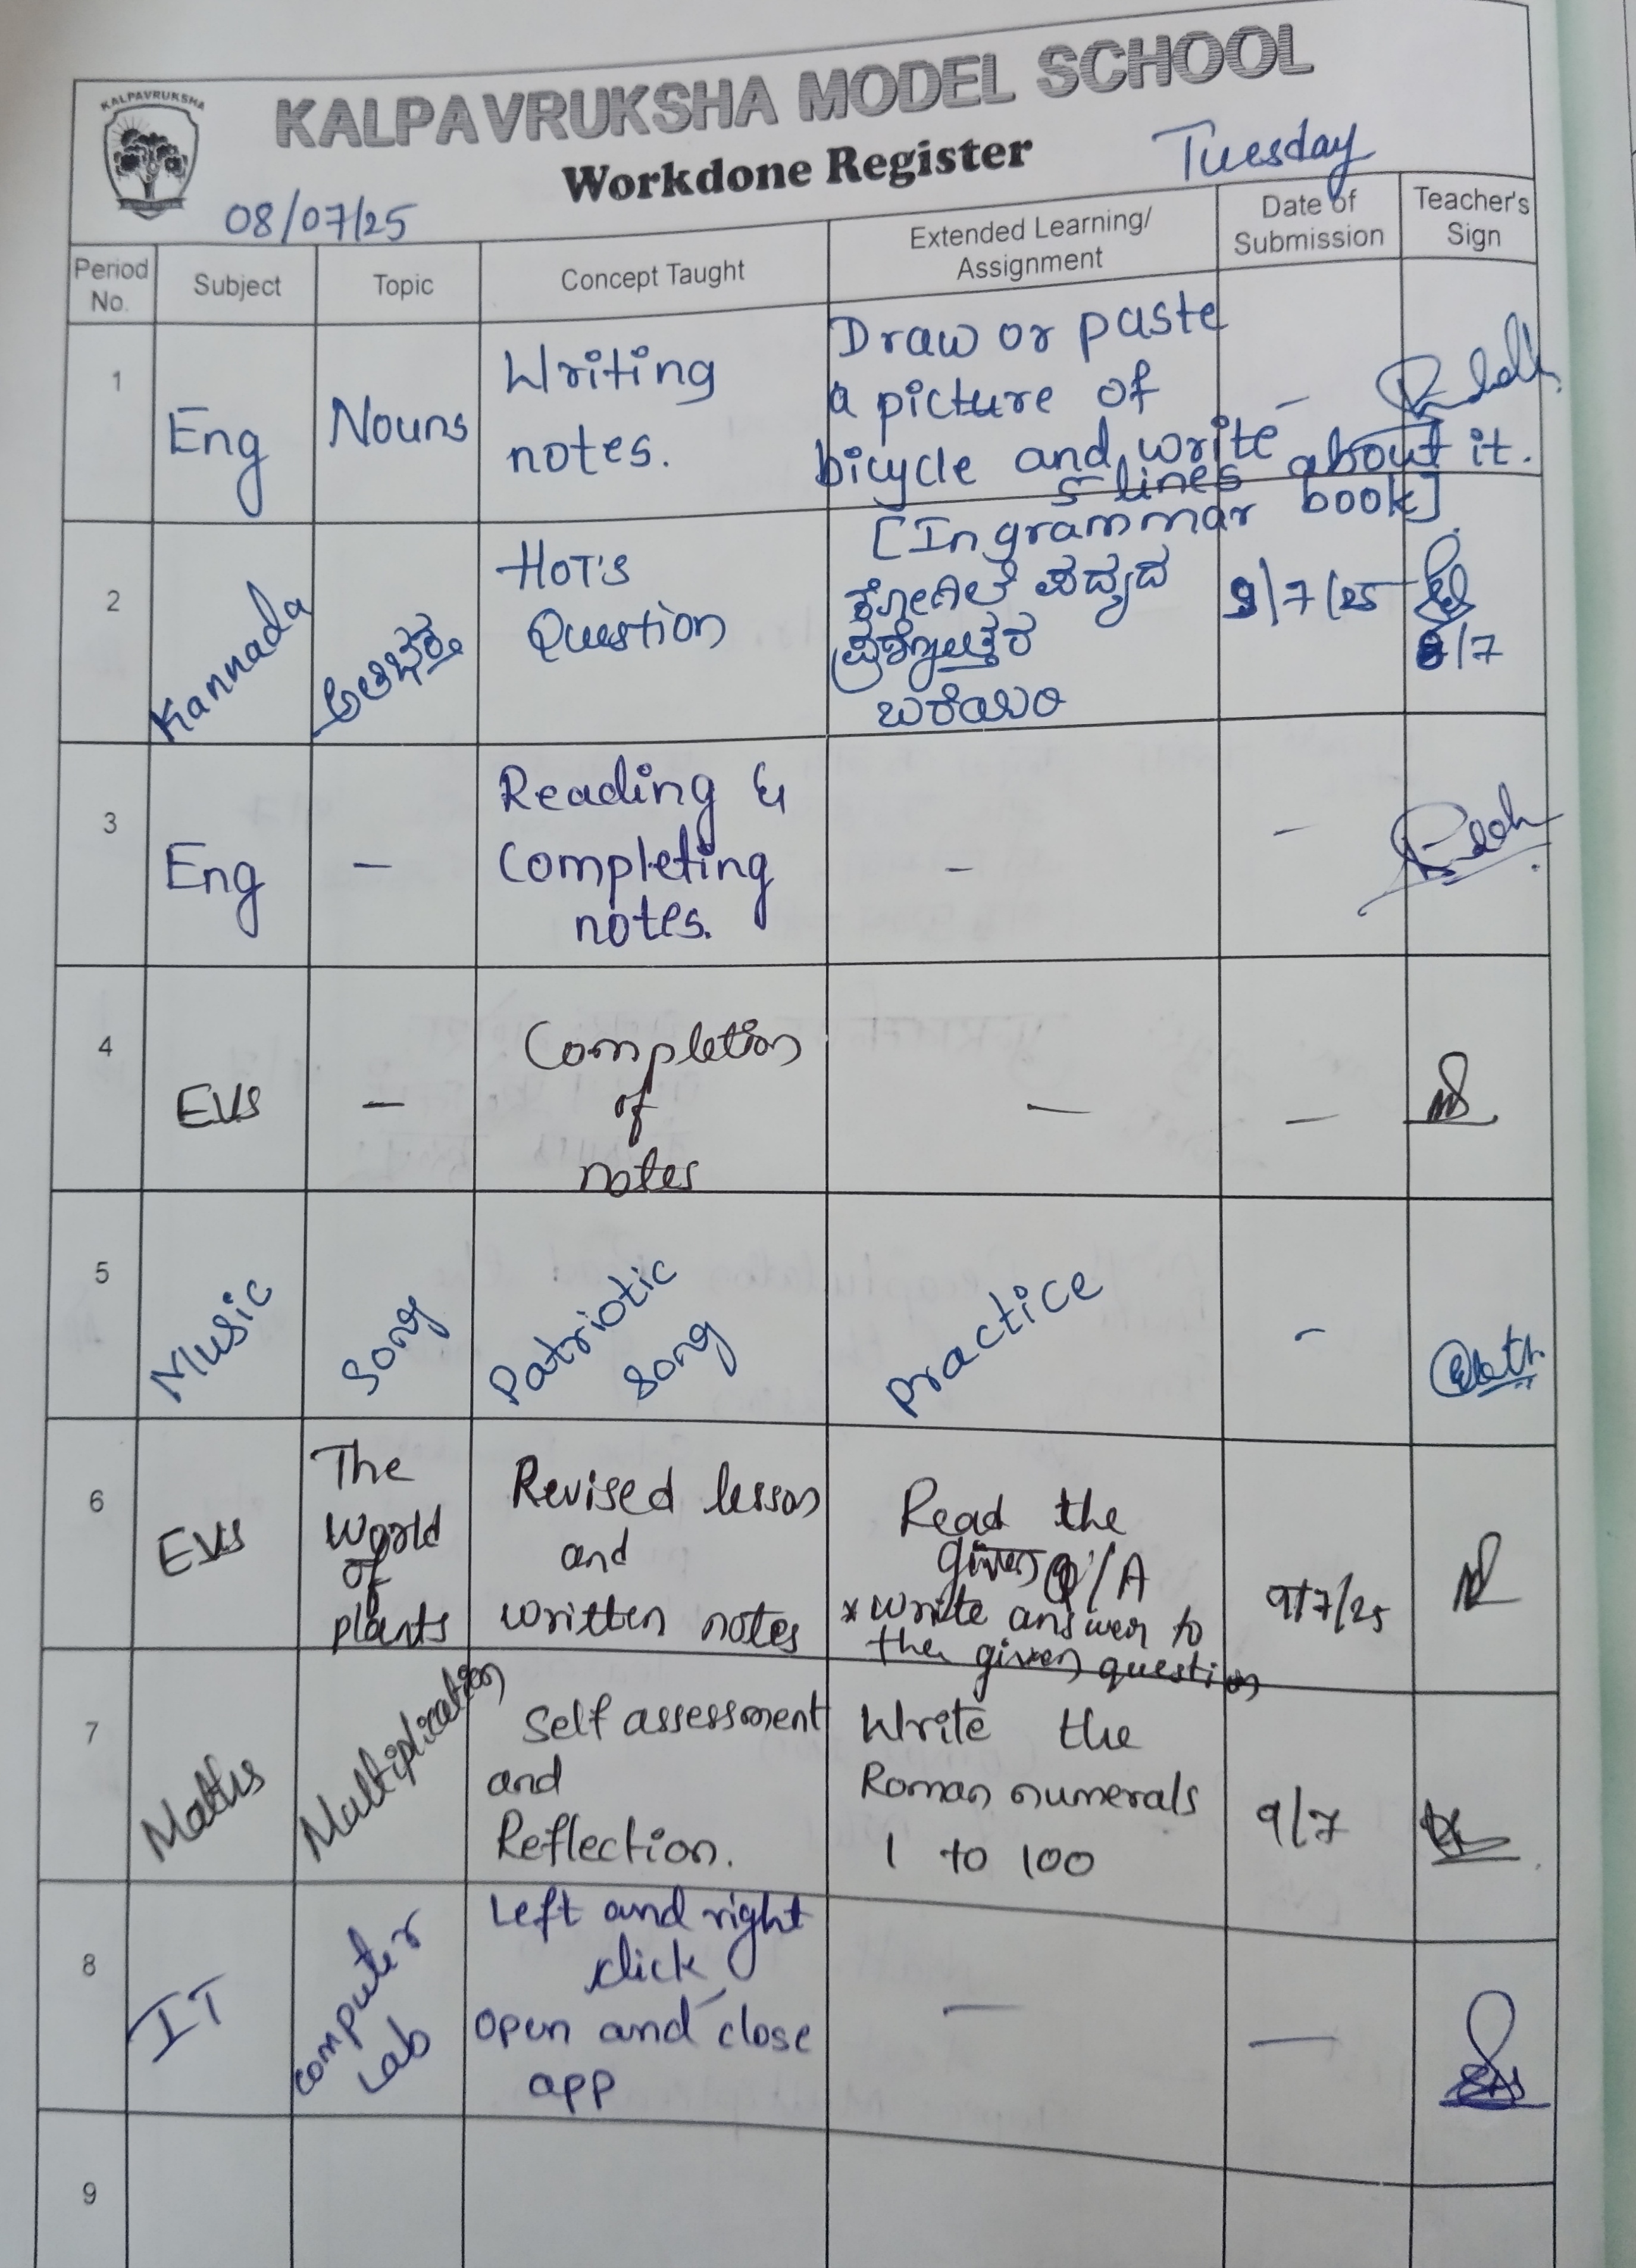 KALPAVRUKSHA
KALPAVRUKSHA MODEL SCHOOL
Workdone Register
Tuesday
08/07/25
Period No.
Subject
Topic
Concept Taught
Extended Learning/
Assignment
Date of
Submission
Teacher's
Sign
1
Eng
Nouns
Writing
notes.
Draw or paste
a picture of
bicycle and write
5 lines
about it.
[In grammar book]
-
2
Kannada
HOT'S
Question
ಕೋಗಿಲೆ ಪದ್ಯದ
ಪ್ರಶ್ನೋತ್ತರ
ಬರೆಯಿರಿ
9/7/25
8/7
3
Eng
-
Reading &
Completing
notes.
-
-
4
EVS
-
Completion
of
notes
-
-
5
Music
Song
Patriotic
song
practice
-
6
EVS
The
World
of
plants
Revised lesson
and
written notes
Read the
given Q/A
*write answer to
the given question
9/7/25
7
Maths
Multiplication
Self assessment
and
Reflection.
Write the
Roman numerals
1 to 100
9/7
8
IT
computer
Lab
Left and right
click
open and close
app
-
-
9